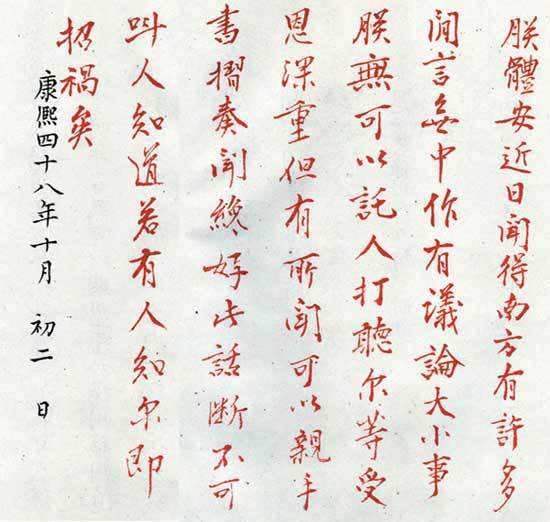 朕體安近日聞得南方有許多
閒言無中作有議論大小事
朕無可以託人打聽尔等受
恩深重但有所聞可以親手
書摺奏聞纔好此話斷不可
呌人知道若有人知尔即
招禍矣
康熙四十八年十月初二日